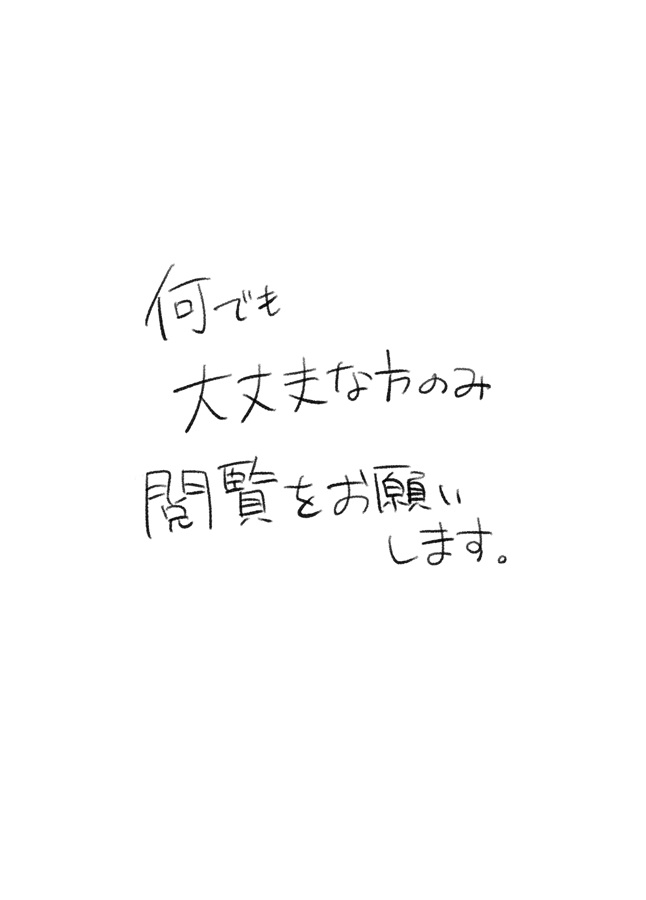 何でも
大丈夫な方のみ
閲覧をお願い
します。